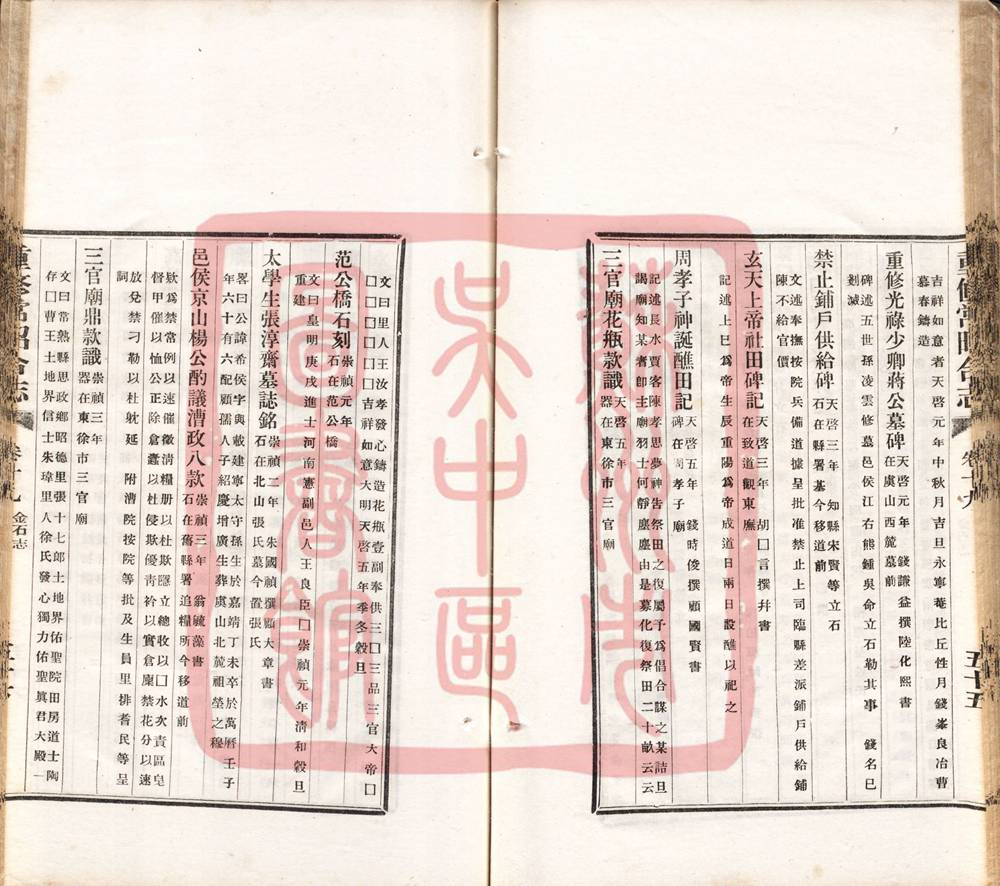 吉祥如意者天啓元年中秋月吉旦永寧菴比丘性月錢峯良冶曹
墓春鑄造
重修光祿少卿蔣公墓碑 天啓元年 錢謙益撰陸化熙書
碑在虞山西麓墓前
碑述五世孫凌雲修墓邑侯江右熊鍾吳命立石勒其事 錢名已
剗滅
禁止鋪戶供給碑 天啓三年 知縣宋賢等立石
石在縣署基今移道前
文述奉撫按院兵備道據呈批准禁止上司臨縣差派鋪戶供給鋪
陳不給官價
玄天上帝社田碑記 天啓三年 胡囗言撰幷書
在致道觀東廡
記述上巳爲帝生辰重陽爲帝成道日兩日設醮以祀之
周孝子神誕醮田記 天啓 年 錢時俊撰顧國賢書
碑在周孝子廟
記述長水賈客陳孝思夢神告祭田之復屬予爲倡合謀之某詰旦
謁廟知某者卽主廟羽士何靜塵塵由是募化復祭田二十畝云云
三官廟花瓶款識 天啓五年
器在東徐市三官廟
文曰里人王汝孝發心鑄造花瓶壹副奉供三囗三品三官大帝囗
囗囗囗囗囗囗吉祥如意大明天啓五年季冬穀旦
范公橋石刻 崇禎元年
石在范公橋
文曰皇明庚戌進士河南憲副邑人王良臣囗崇禎元年淸和穀旦
重建
太學生張淳齋墓誌銘 崇禎二年 朱國禎撰顧大章書
石在北山張氏墓今置張氏
畧曰公諱希侯字與載建寧太守孫生於嘉靖丁未卒於萬曆壬子
年六十有六配顧孺人子紹慶增廣生葬虞山北麓祖塋之穆
邑侯京山楊公酌議漕政八款 崇禎三年 翁毓藻書
石在舊縣署追糧所今移道前
欵爲禁常例以速催徵淸糧册以杜欺隱立總收以囗水次責區皂
督甲催以恤公正除倉蠹以杜侵欺優靑衿以實倉廩禁花分以速
放兌禁刁勒以杜躭延 附漕院按院等批及生員里排耆民等呈
詞
三官廟鼎款識 崇禎三年
器在東徐市三官廟
文曰常熟縣思政鄉昭德里張十七郎土地界佑聖院田房道士陶
存囗曹王土地界信士朱瑋里人徐氏發心獨力佑聖眞君大殿一
重修常昭合志 卷十九 金石志 五十五